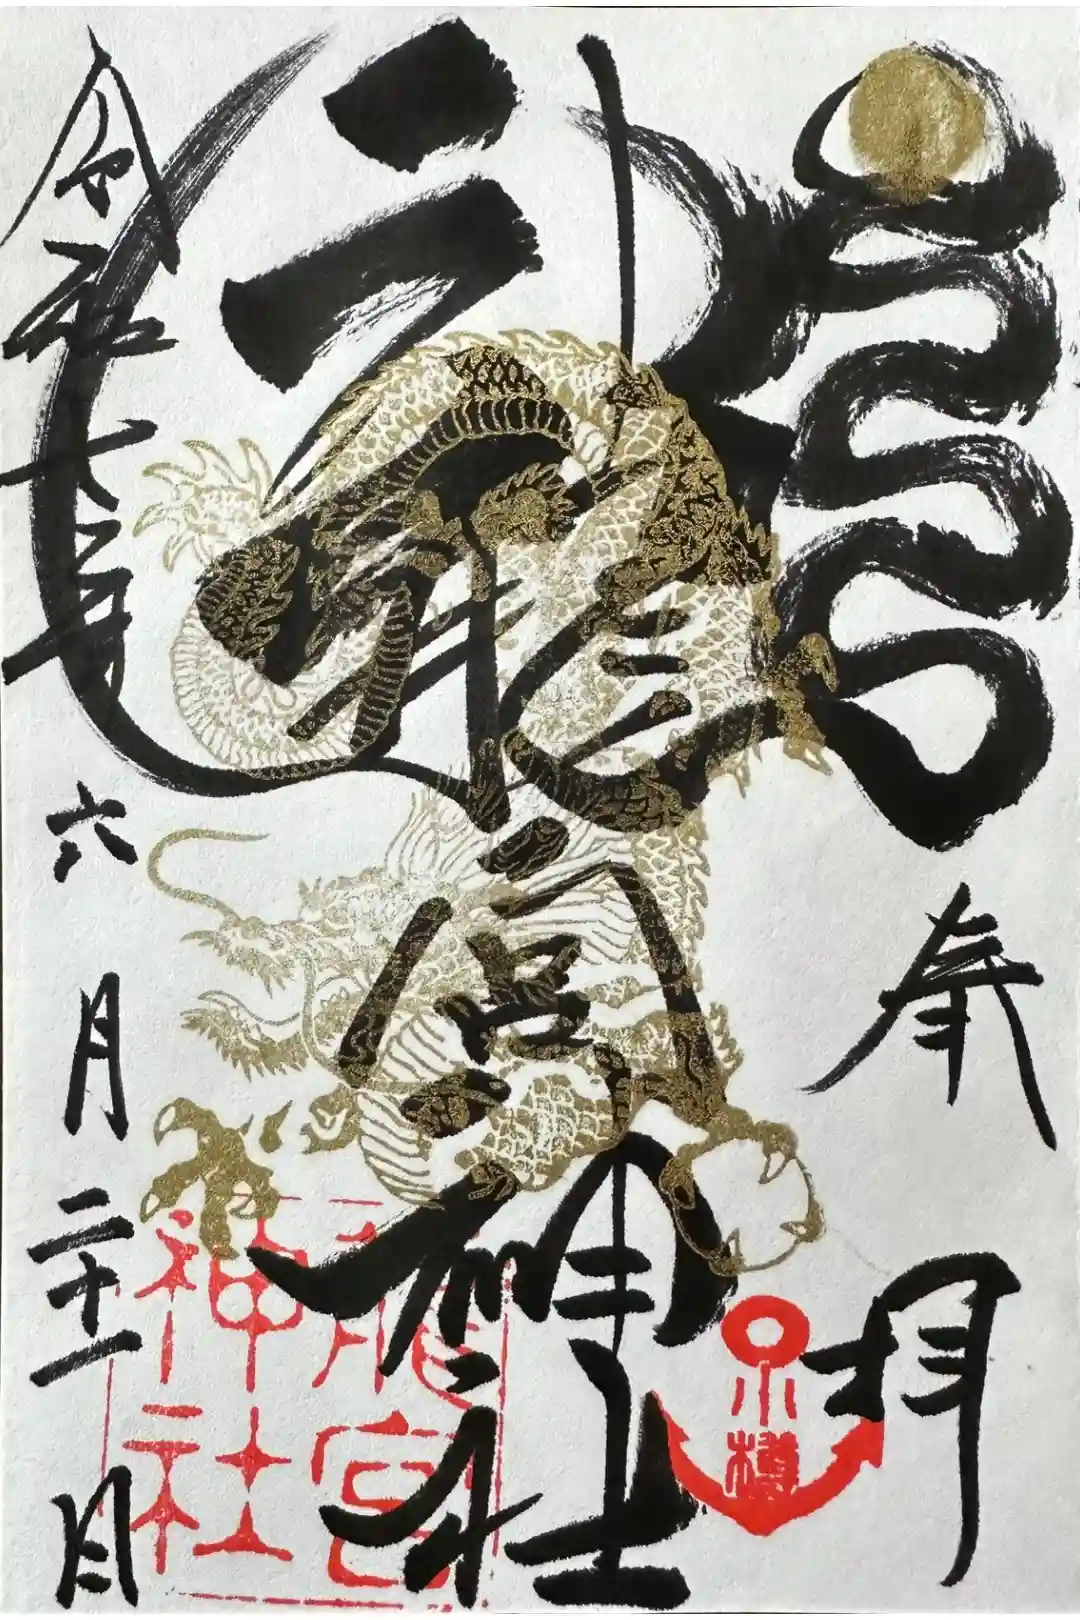 奉拝
龍宮神社
令和六年六月二十一日
小樽
龍宮
神社